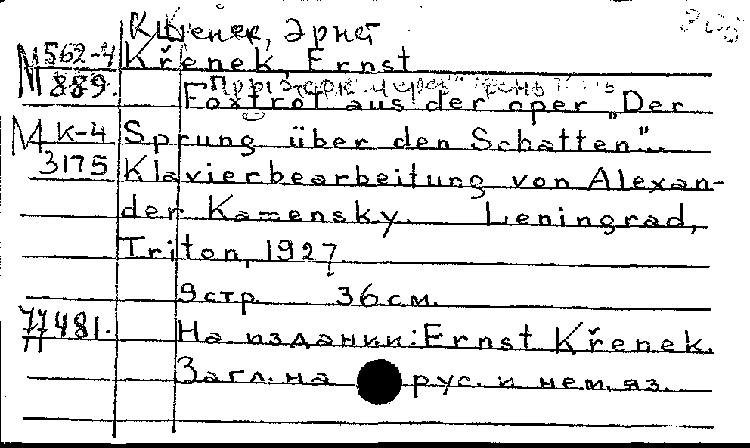 Кшенек, Эрнст
М 562-4 Křenek, Ernst
889. "Прыжок через тень"
Foxtrot aus der oper „Der
М К-4 Sprung über den Schatten“.
3175 Klavierbearbeitung von Alexan-
der Kamensky. Leningrad,
Triton, 1927.
9 стр. 36 см.
77481. На издании: Ernst Křenek.
Загл. на рус. и нем. яз.